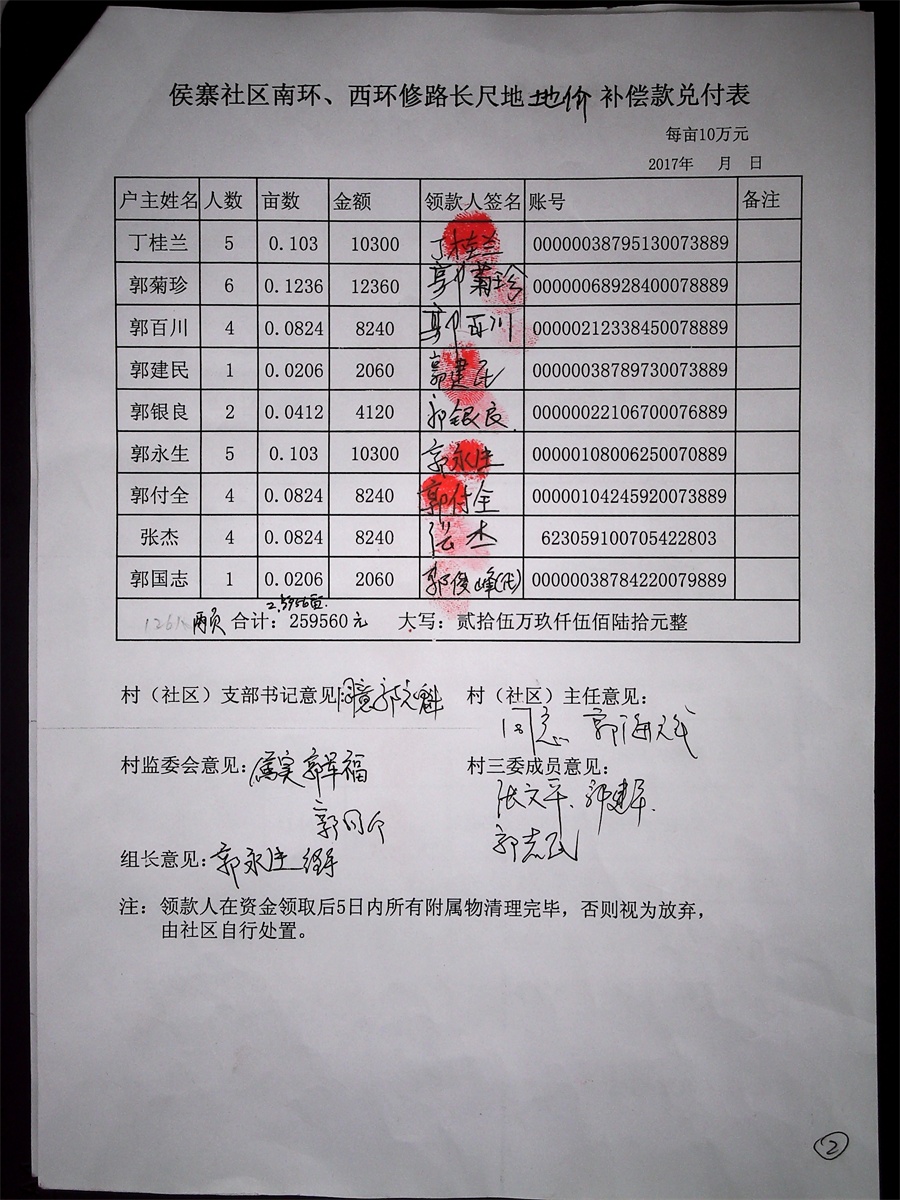 侯寨社区南环、西环修路长尺地 地价 补偿款兑付表
每亩10万元
2017年 月 日
户主姓名 人数 亩数 金额 领款人签名 账号 备注
丁桂兰 5 0.103 10300 丁桂兰 00000038795130073889
郭菊珍 6 0.1236 12360 郭菊珍 00000068928400078889
郭百川 4 0.0824 8240 郭百川 00000212338450078889
郭建民 1 0.0206 2060 郭建民 00000038789730073889
郭银良 2 0.0412 4120 郭银良 00000022106700076889
郭永生 5 0.103 10300 郭永生 00000108006250070889
郭付全 4 0.0824 8240 郭付全 00000104245920073889
张杰 4 0.0824 8240 张杰 623059100705422803
郭国志 1 0.0206 2060 郭俊峰(代) 00000038784220079889
2.5956亩
126人 两页 合计：259560元 大写：贰拾伍万玖仟伍佰陆拾元整
村（社区）支部书记意见：同意 村（社区）主任意见：
同意 郭海
村监委会意见：属实 郭军福 村三委成员意见：
张文平、郭建军
郭志民
组长意见：郭永生 经手
注：领款人在资金领取后5日内所有附属物清理完毕，否则视为放弃，
由社区自行处置。
2